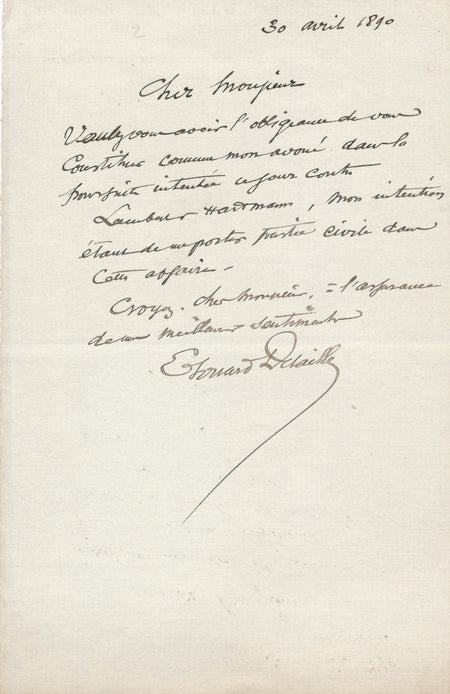 30 avril 1890
Cher Monsieur
Veuillez vous avoir l'obligeance de vous
Constituer comme mon avoué dans la
poursuite intentée ce jour contre
Lambert & Hartmann, mon intention
étant de me porter partie civile dans
Cette affaire.
Croyez, cher Monsieur, à l'assurance
de mes meilleurs sentiments
Edouard Detaille